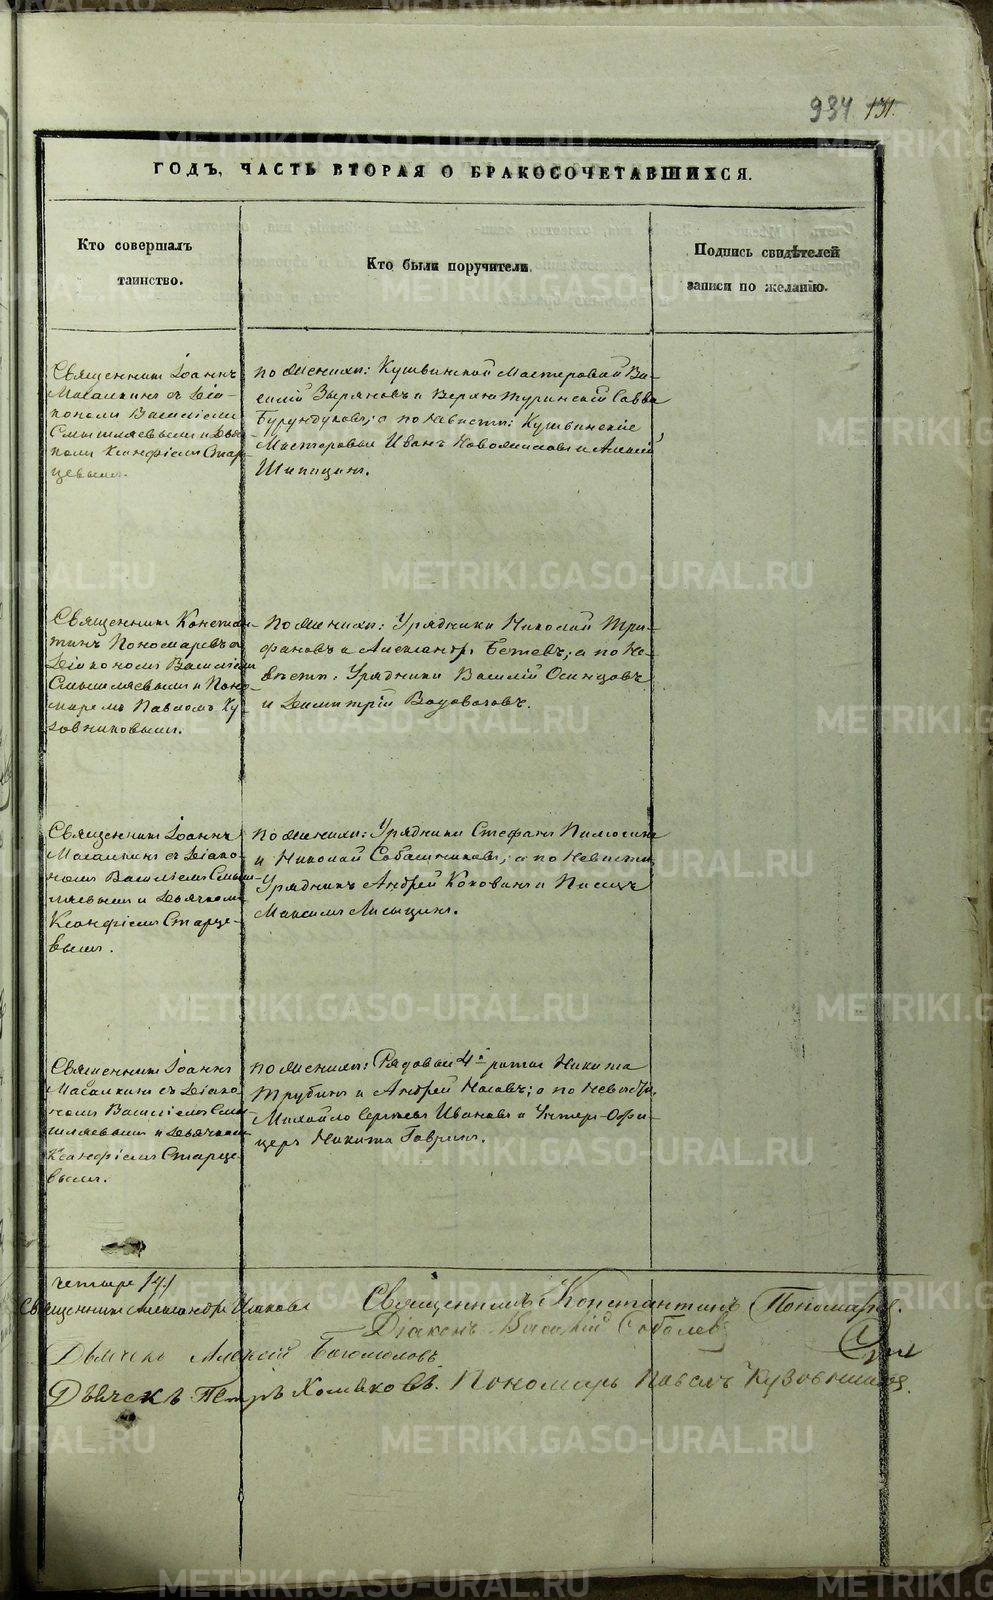 934 131.
ГОДЪ, ЧАСТЬ ВТОРАЯ О БРАКОСОЧЕТАВШИХСЯ.
Кто совершалъ
таинство.
Кто были поручители.
Подпись свидѣтелей
записи по желанію.
Священникъ Іоаннъ
съ Діа-
кономъ Василіемъ
Смышляевымъ и Дья-
Ксанфіемъ Стар-
цевымъ.
По женихѣ: Кушвинской Мастеровой Ва-
силій Зыряновъ и Верхнетуринскій Савва
Бурундуковъ; а по невѣстѣ: Кушвинскіе
Мастеровые Иванъ и Алексѣй
Шипицинъ.
Священникъ Констан-
тинъ Пономаревъ съ
Діакономъ Василіемъ
Смышляевымъ и Поно-
маремъ Павломъ Ку-
зовниковымъ.
По женихѣ: Урядники Николай Три-
фановъ и Александръ Бетевъ; а по Не-
вѣстѣ: Урядники Василій Осинцовъ
и Димитрій Водовозовъ.
Священникъ Іоаннъ
съ Діако-
номъ Василіемъ Смыш-
ляевымъ и Дьячкомъ
Ксанфіемъ Старце-
вымъ.
По женихѣ: Урядники Стефанъ
и Николай Собашниковъ; а по Невѣстѣ
Урядникъ Андрей Коковинъ и Писецъ
Максимъ Лисицинъ.
Священникъ Іоаннъ
съ Діако-
номъ Василіемъ Смы-
шляевымъ и Дьячкомъ
Ксанфіемъ Старце-
вымъ.
По женихѣ: Рядовые 4й роты Никита
Трубинъ и Андрей Носовъ; а по Невѣстѣ
Михайло Сергѣевъ Ивановъ и Унтеръ-Офи-
церъ Никита Гавринъ.
четыре /4/
Священникъ Александръ
Священникъ Константинъ Пономаревъ.
Діаконъ Василій Соболевъ
Дьячекъ Алексій Богомоловъ
Дьячекъ Петръ Хомяковъ. Пономарь Павелъ Кузовниковъ.
METRIKI.GASO-URAL.RU